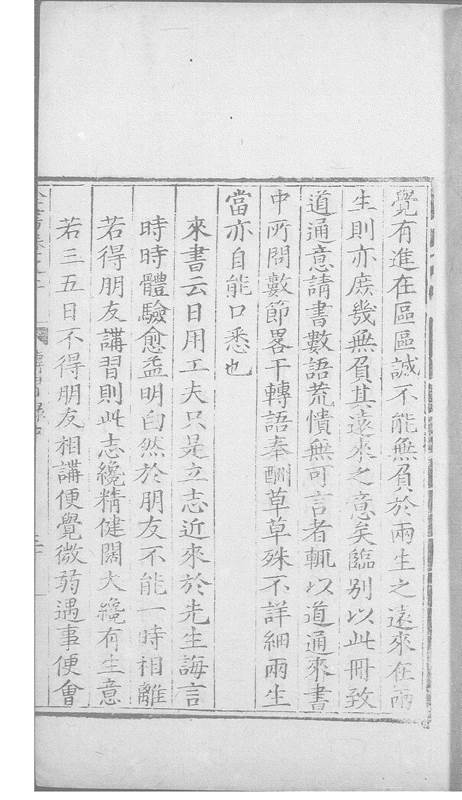 覺有進在區區誠不能無負於兩生之遠來在兩
生則亦庶幾無負其遠來之意矣臨別以此冊致
道通意請書數語荒憒無可言者輒以道通來書
中所問數節畧下轉語奉酬草草殊不詳細兩生
當亦自能口悉也
來書云日用工夫只是立志近來於先生誨言
時時體驗愈益明白然於朋友不能一時相離
若得朋友講習則此志纔精健闊大纔有生意
若三五日不得朋友相講便覺微弱遇事便會